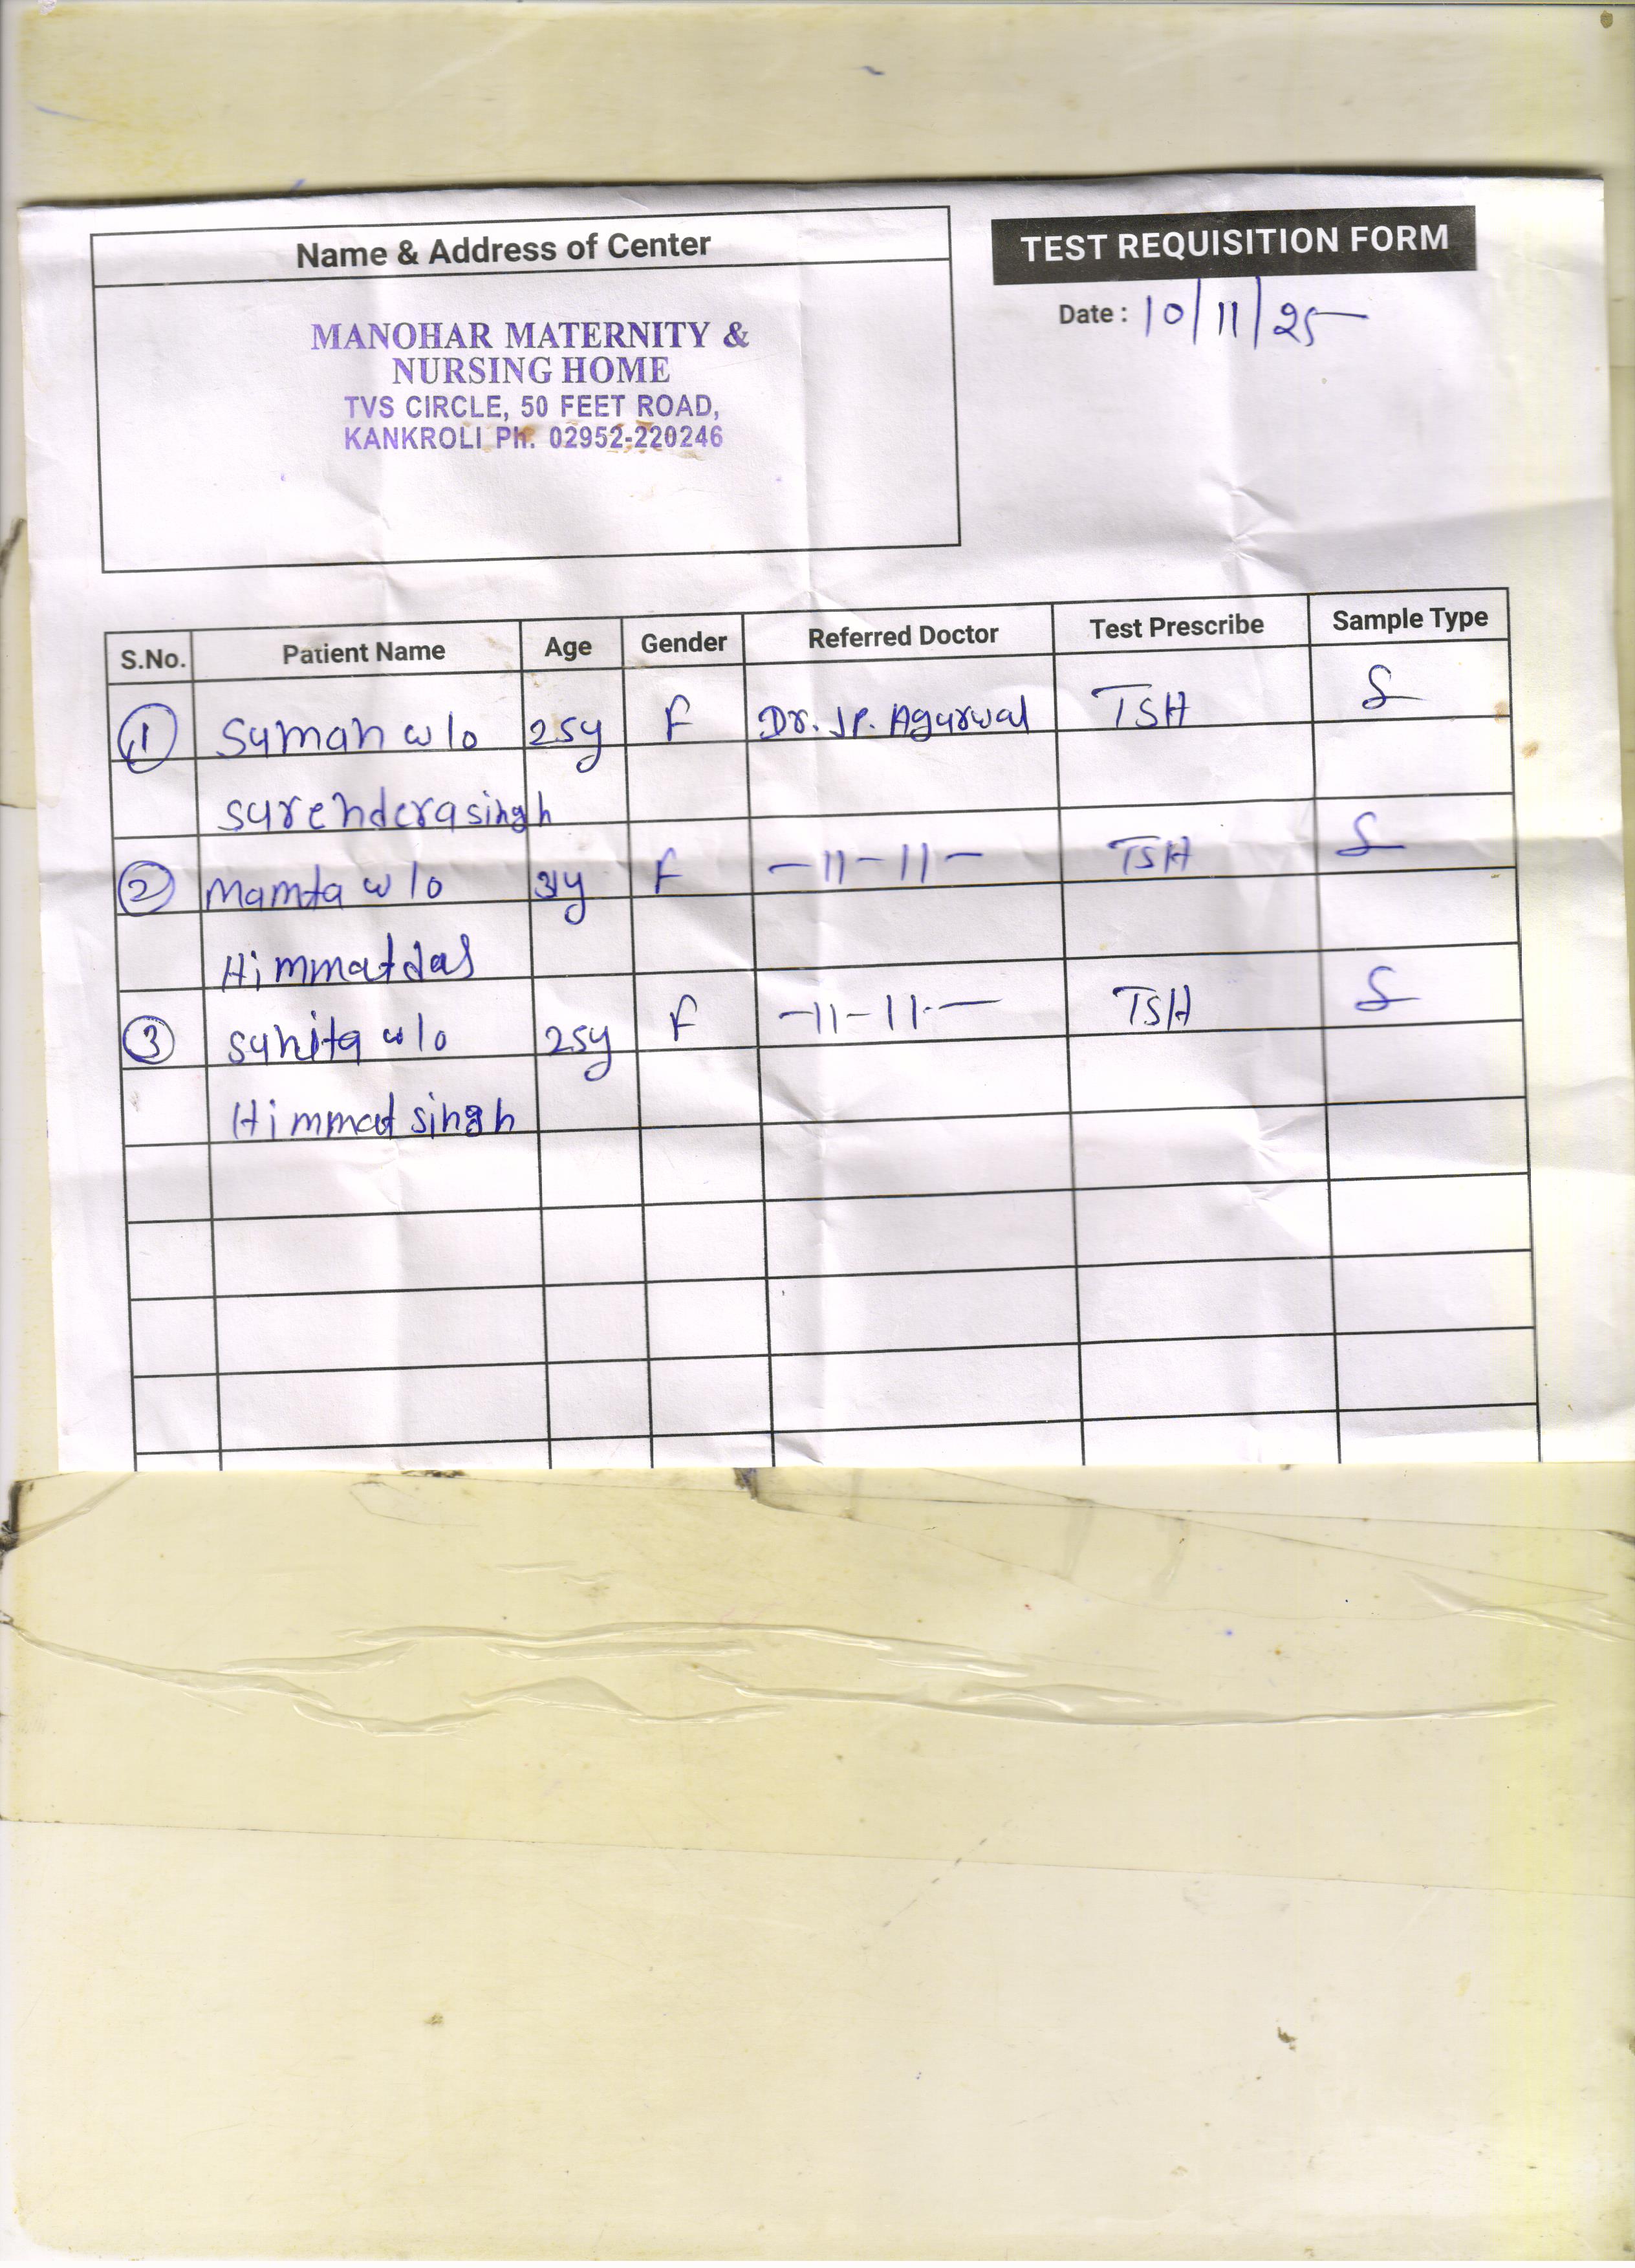 Name & Address of Center
TEST REQUISITION FORM
Date : 10/11/25
MANOHAR MATERNITY &
NURSING HOME
TVS CIRCLE, 50 FEET ROAD,
KANKROLI Ph. 02952-220246
S.No. Patient Name Age Gender Referred Doctor Test Prescribe Sample Type
1 Suman w/o 25y F Dr. J.P. Agarwal TSH S
Surenderasingh
2 Mamta w/o 31y F -11-11- TSH S
Himmatdas
3 Sunita w/o 25y F -11-11- TSH S
Himmat singh